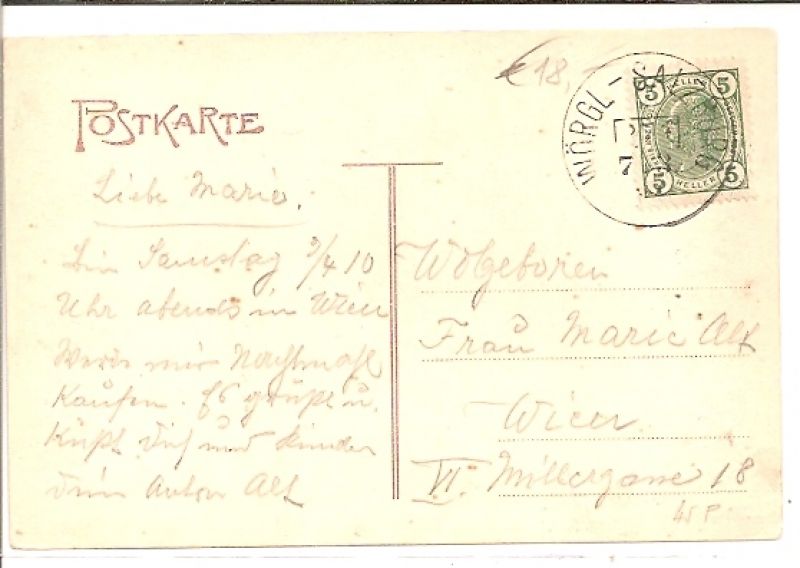 POSTKARTE
€ 18,-
WÖRGL - SAL
7
5 HELLER 5
5 HELLER 5
Liebe Marie.
Bin Samstag 3/4 10
Uhr abends in Wien
Werde mir Nachtmahl
Kaufen. Es grüßt u.
Küßt dich und Kinder
dein Anton Alt
Wolgeboren
Frau Marie Alt
Wien
VI. Millergasse 18